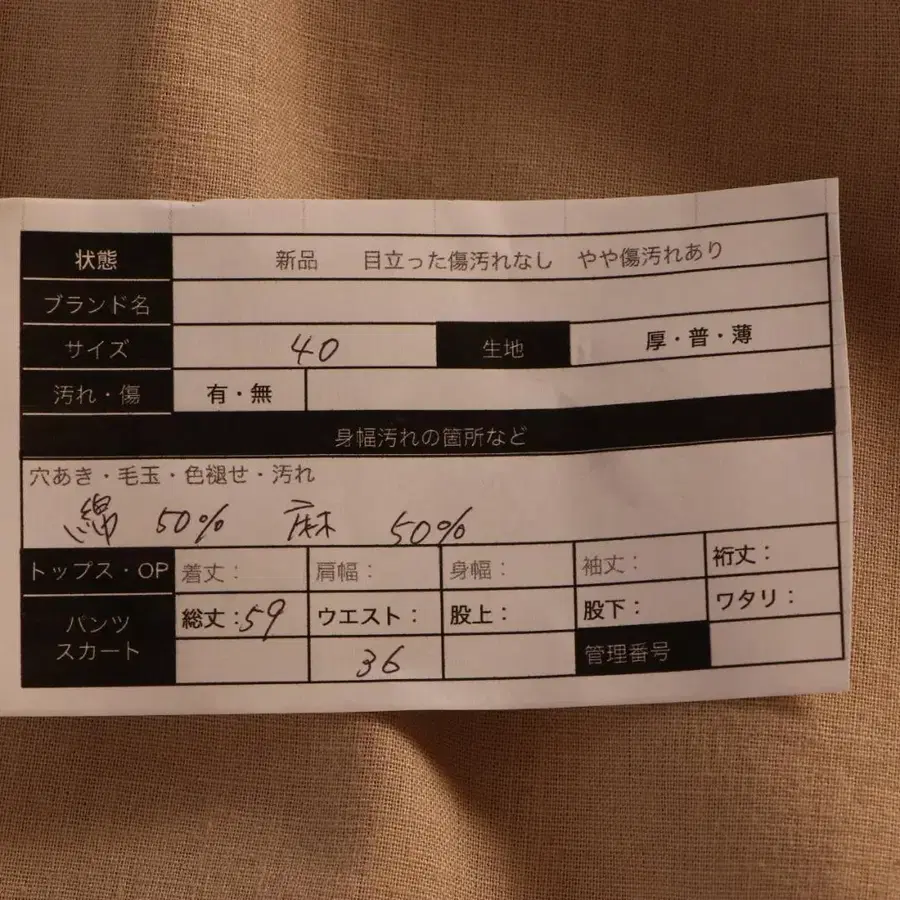 状態 新品 目立った傷汚れなし やや傷汚れあり
ブランド名
サイズ 40 生地 厚・普・薄
汚れ・傷 有・無
身幅汚れの箇所など
穴あき・毛玉・色褪せ・汚れ
綿 50% 麻 50%
トップス・OP 着丈: 肩幅: 身幅: 袖丈: 裄丈:
パンツ スカート 総丈:59 ウエスト: 股上: 股下: ワタリ:
36 管理番号